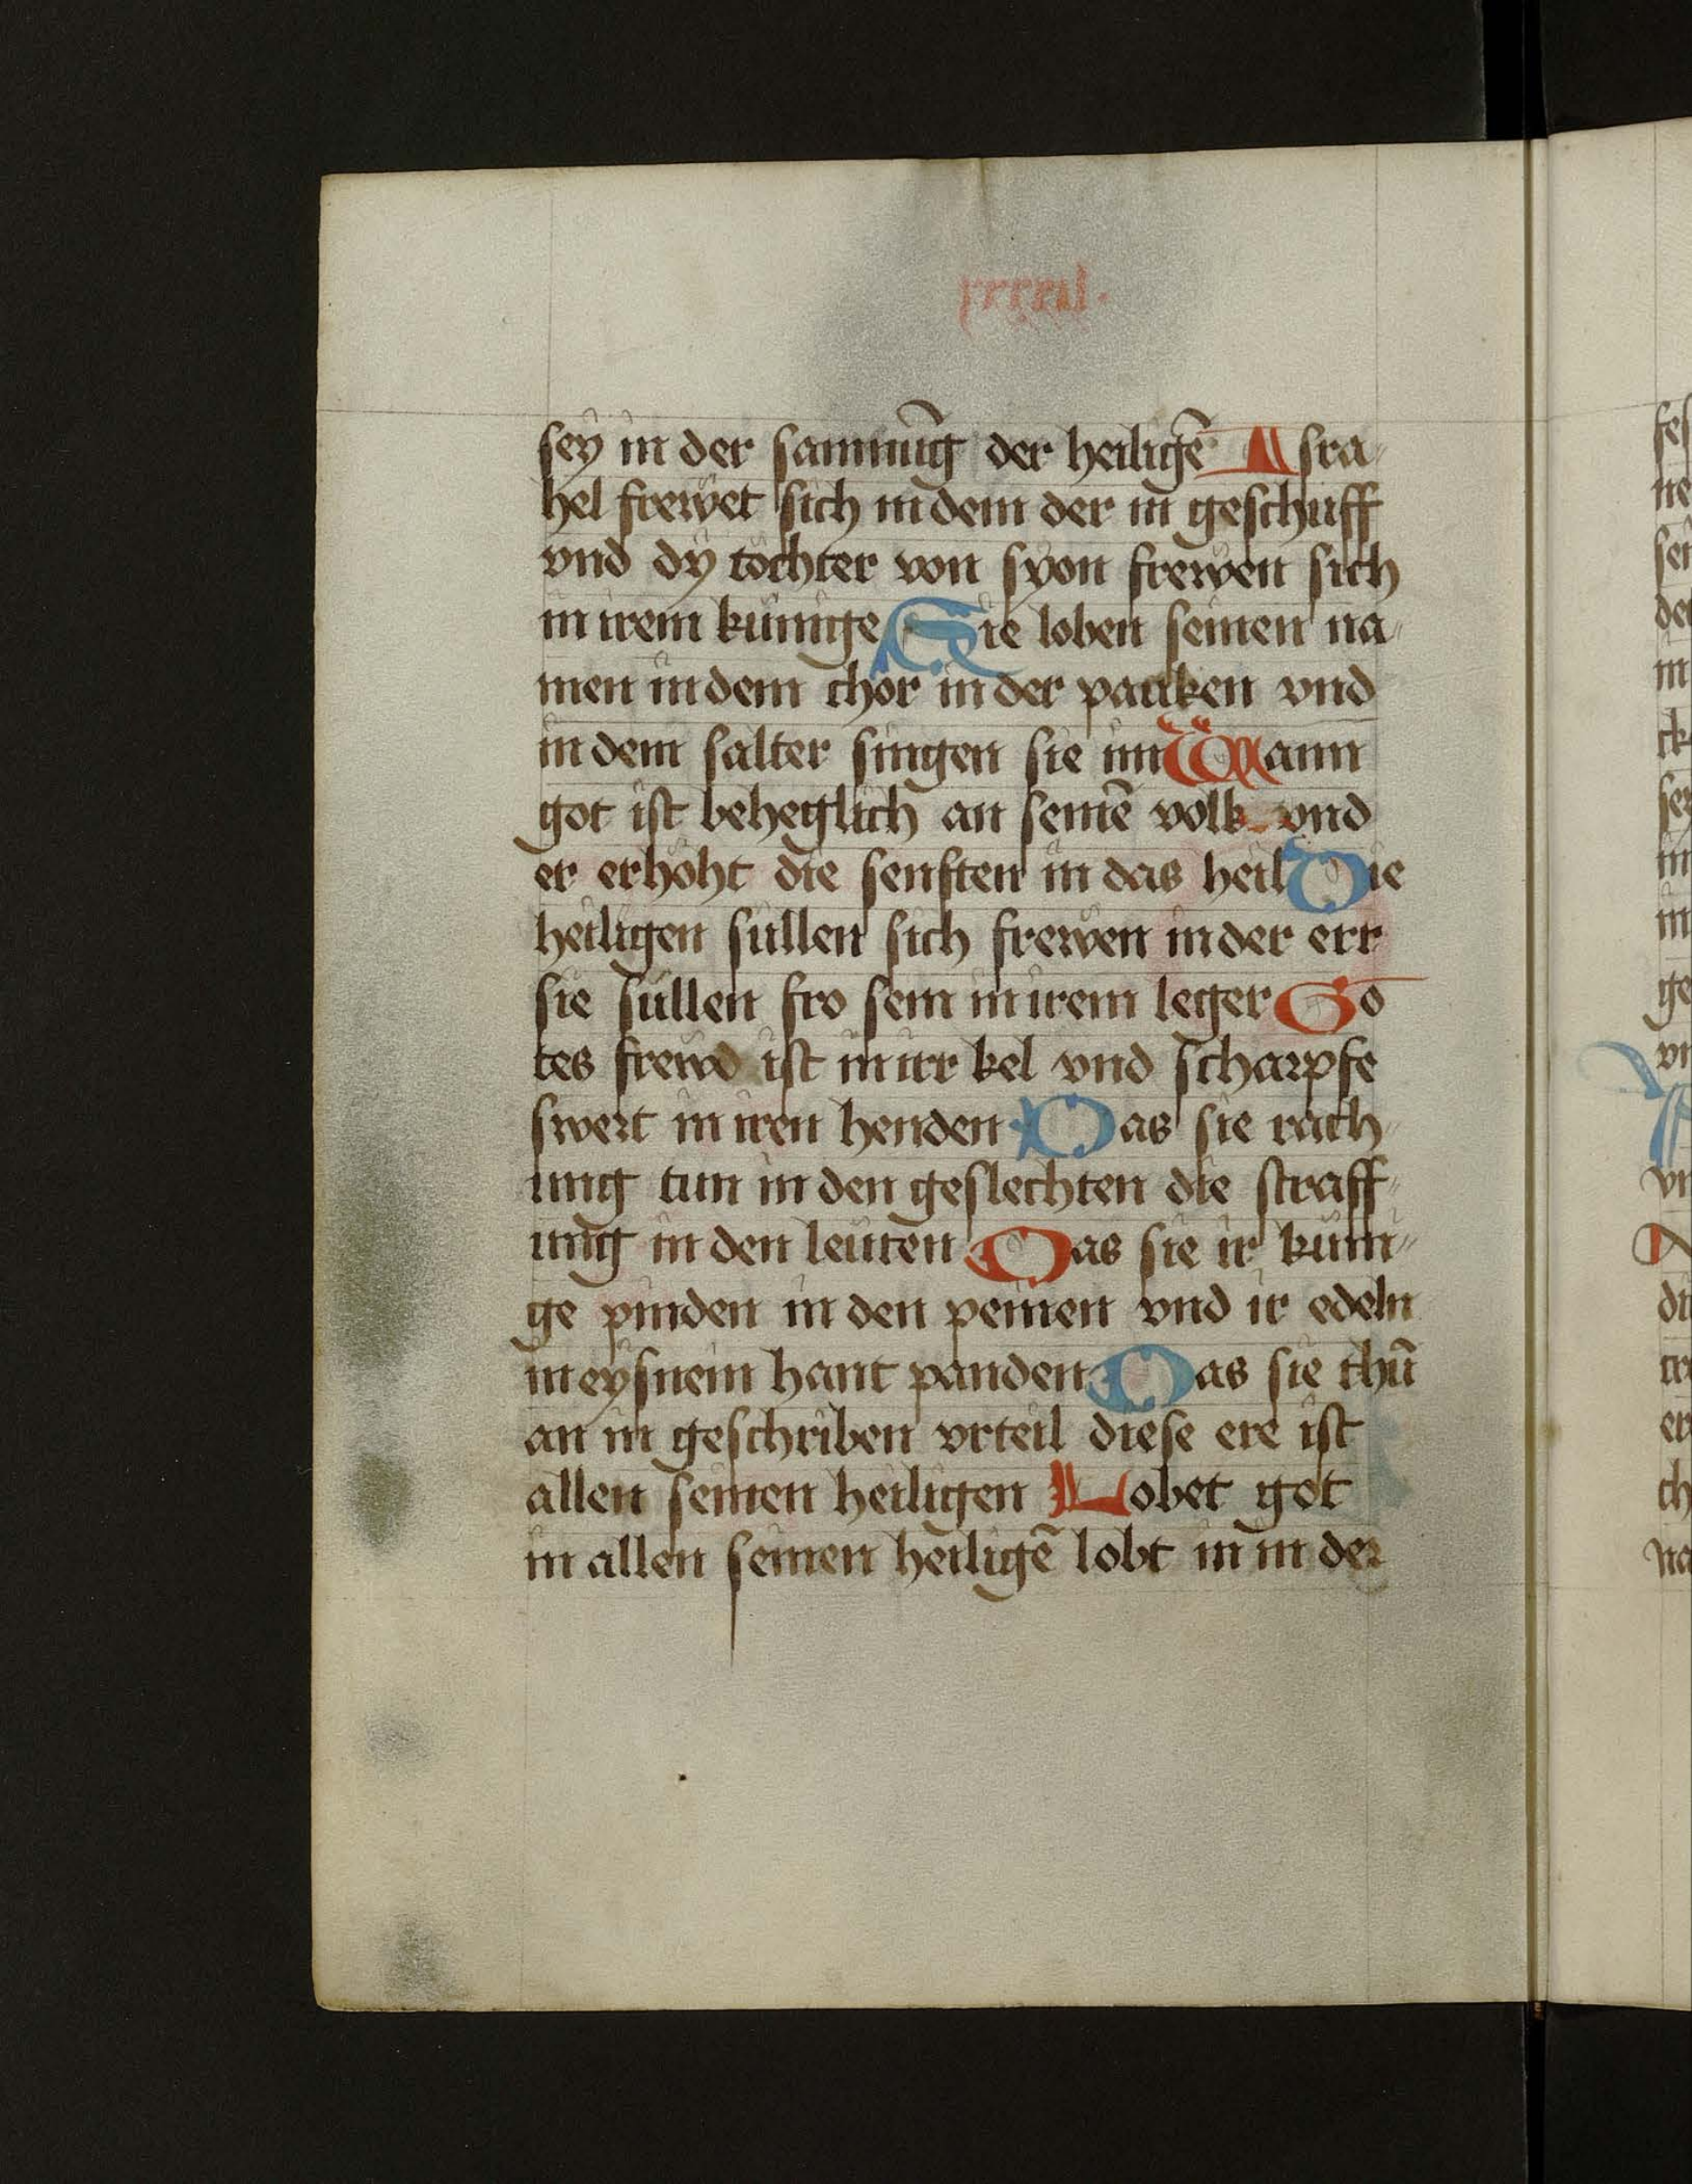 sey in der sammūg der heiligē Isra
hel frewet sich in dem der in geschuff
vnd dy töchter von syon frewen sich
in irem künige Sie loben seinen na
men in dem chor in der pauken vnd
in dem salter singen sie im Wann
got ist beheglich an seinē volk vnd
er erhöht die senften in das heil Die
heiligen süllen sich frewen in der err
sie süllen fro sein in irem leger Go
tes frewd ist in irr kel vnd scharpfe
swert in iren henden Das sie rach
ung tun in den geslechten die straff
ung in den leüten Das sie ir küni
ge pinden in den peinen vnd ir edeln
in eysnein hant panden Das sie thū
an in geschriben vrteil diese ere ist
allen seinen heiligen Lobet got
in allen seinen heiligē lobt in in der